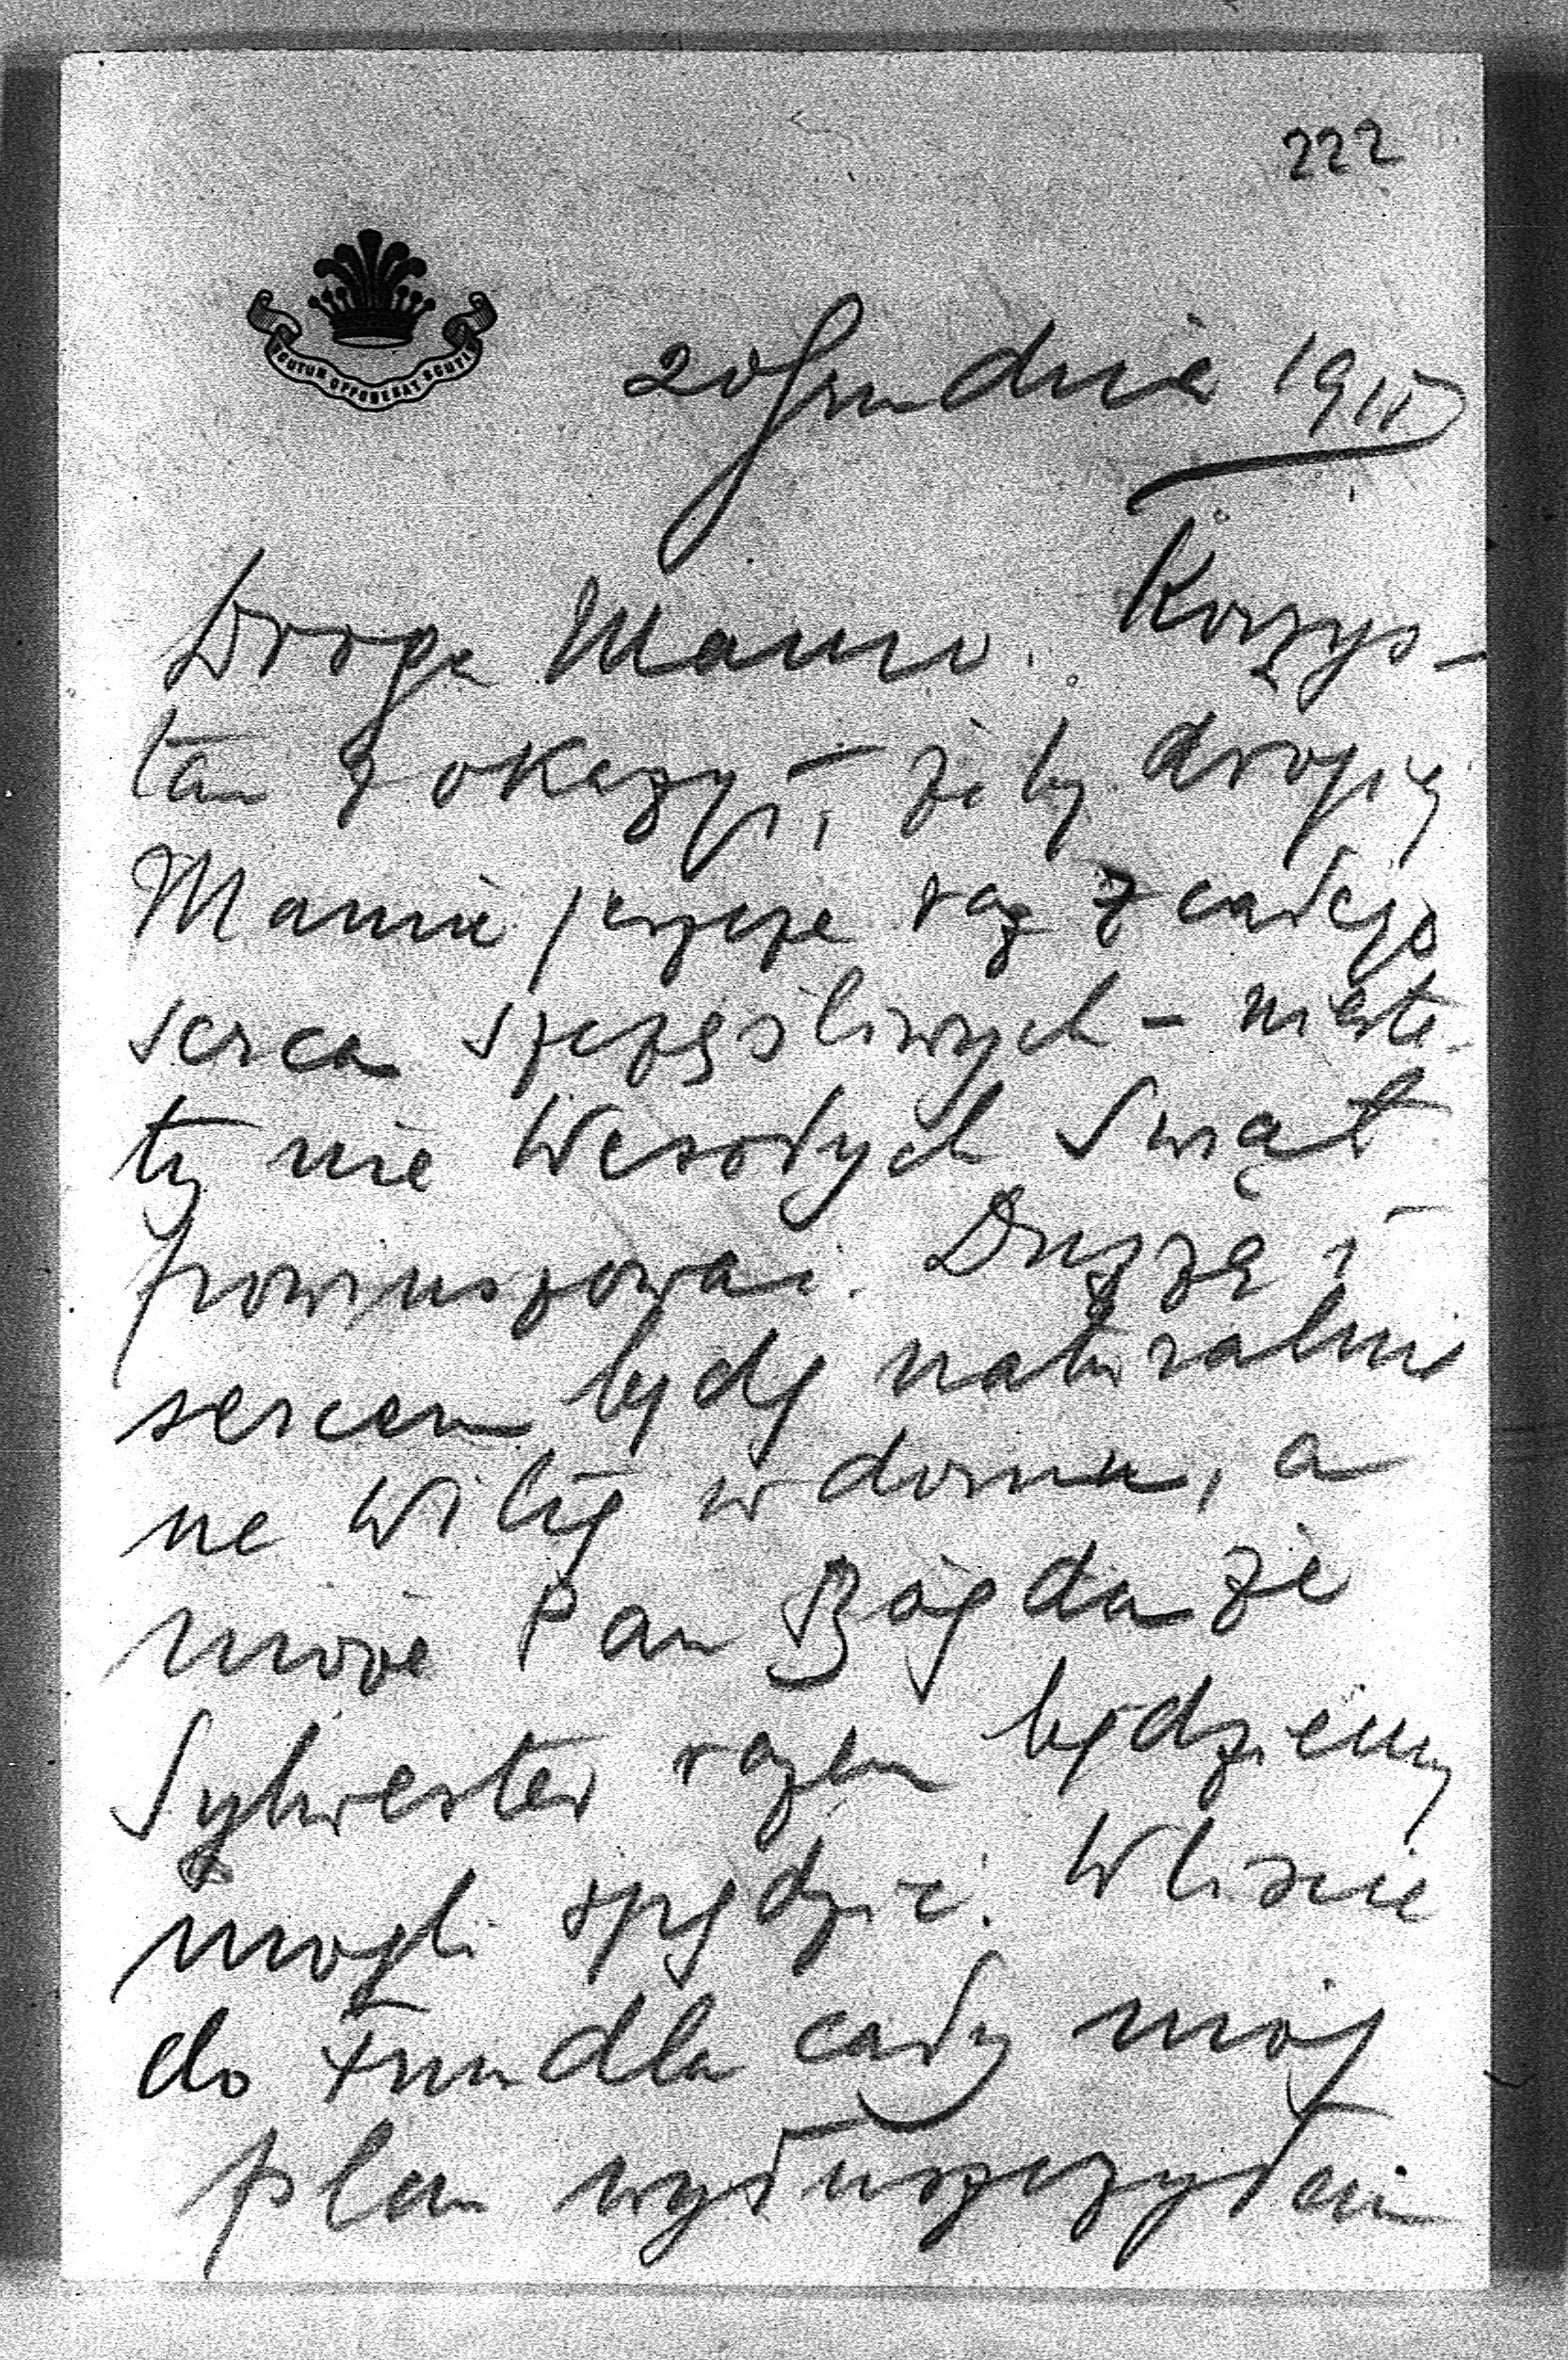 222
SCUTUM OPPONEBAT SCUTI
20 Grudnia 1915
Droga Mamo. Korzys-
tam z okazyi, żeby drogiej
Mamie jeszcze raz z całego
serca szczęśliwych – nieste-
ty nie Wesołych Świąt
powinszować. Duszą i
sercem będę naturalnie
na Wilię w domu, a
może Pan Bóg da że
Sylwester razem będziemy
mogli spędzić. W liście
do Fundla cały mój
plan wyłuszczyłem